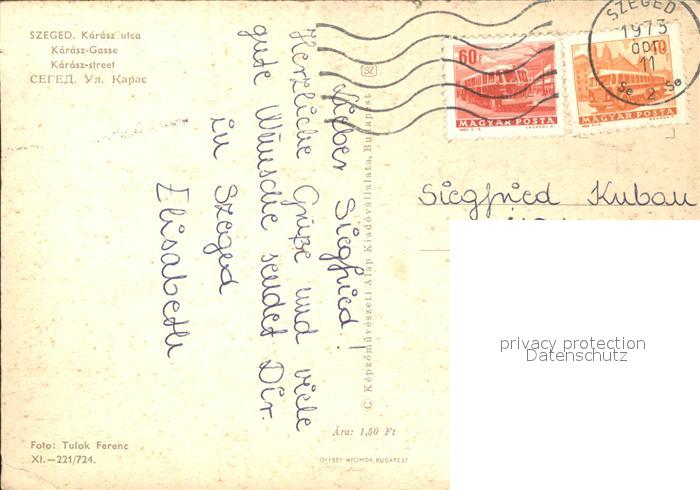 SZEGED. Kárász utca
Kárász-Gasse
Kárász-street
СЕГЕД. Ул. Карас
Lieber Siegfried!
Herzliche Grüße und viele
gute Wünsche sendet Dir
in Szeged
Elisabeth
© Képzőművészeti Alap Kiadóvállalata, Budapest
60f
MAGYAR POSTA
MAGYAR POSTA
SZEGED
1973
11
Siegfried Kubau
privacy protection
Datenschutz
Foto: Tulok Ferenc
XI.—221/724.
Ára: 1,50 Ft
OFFSET-NYOMDA, BUDAPEST